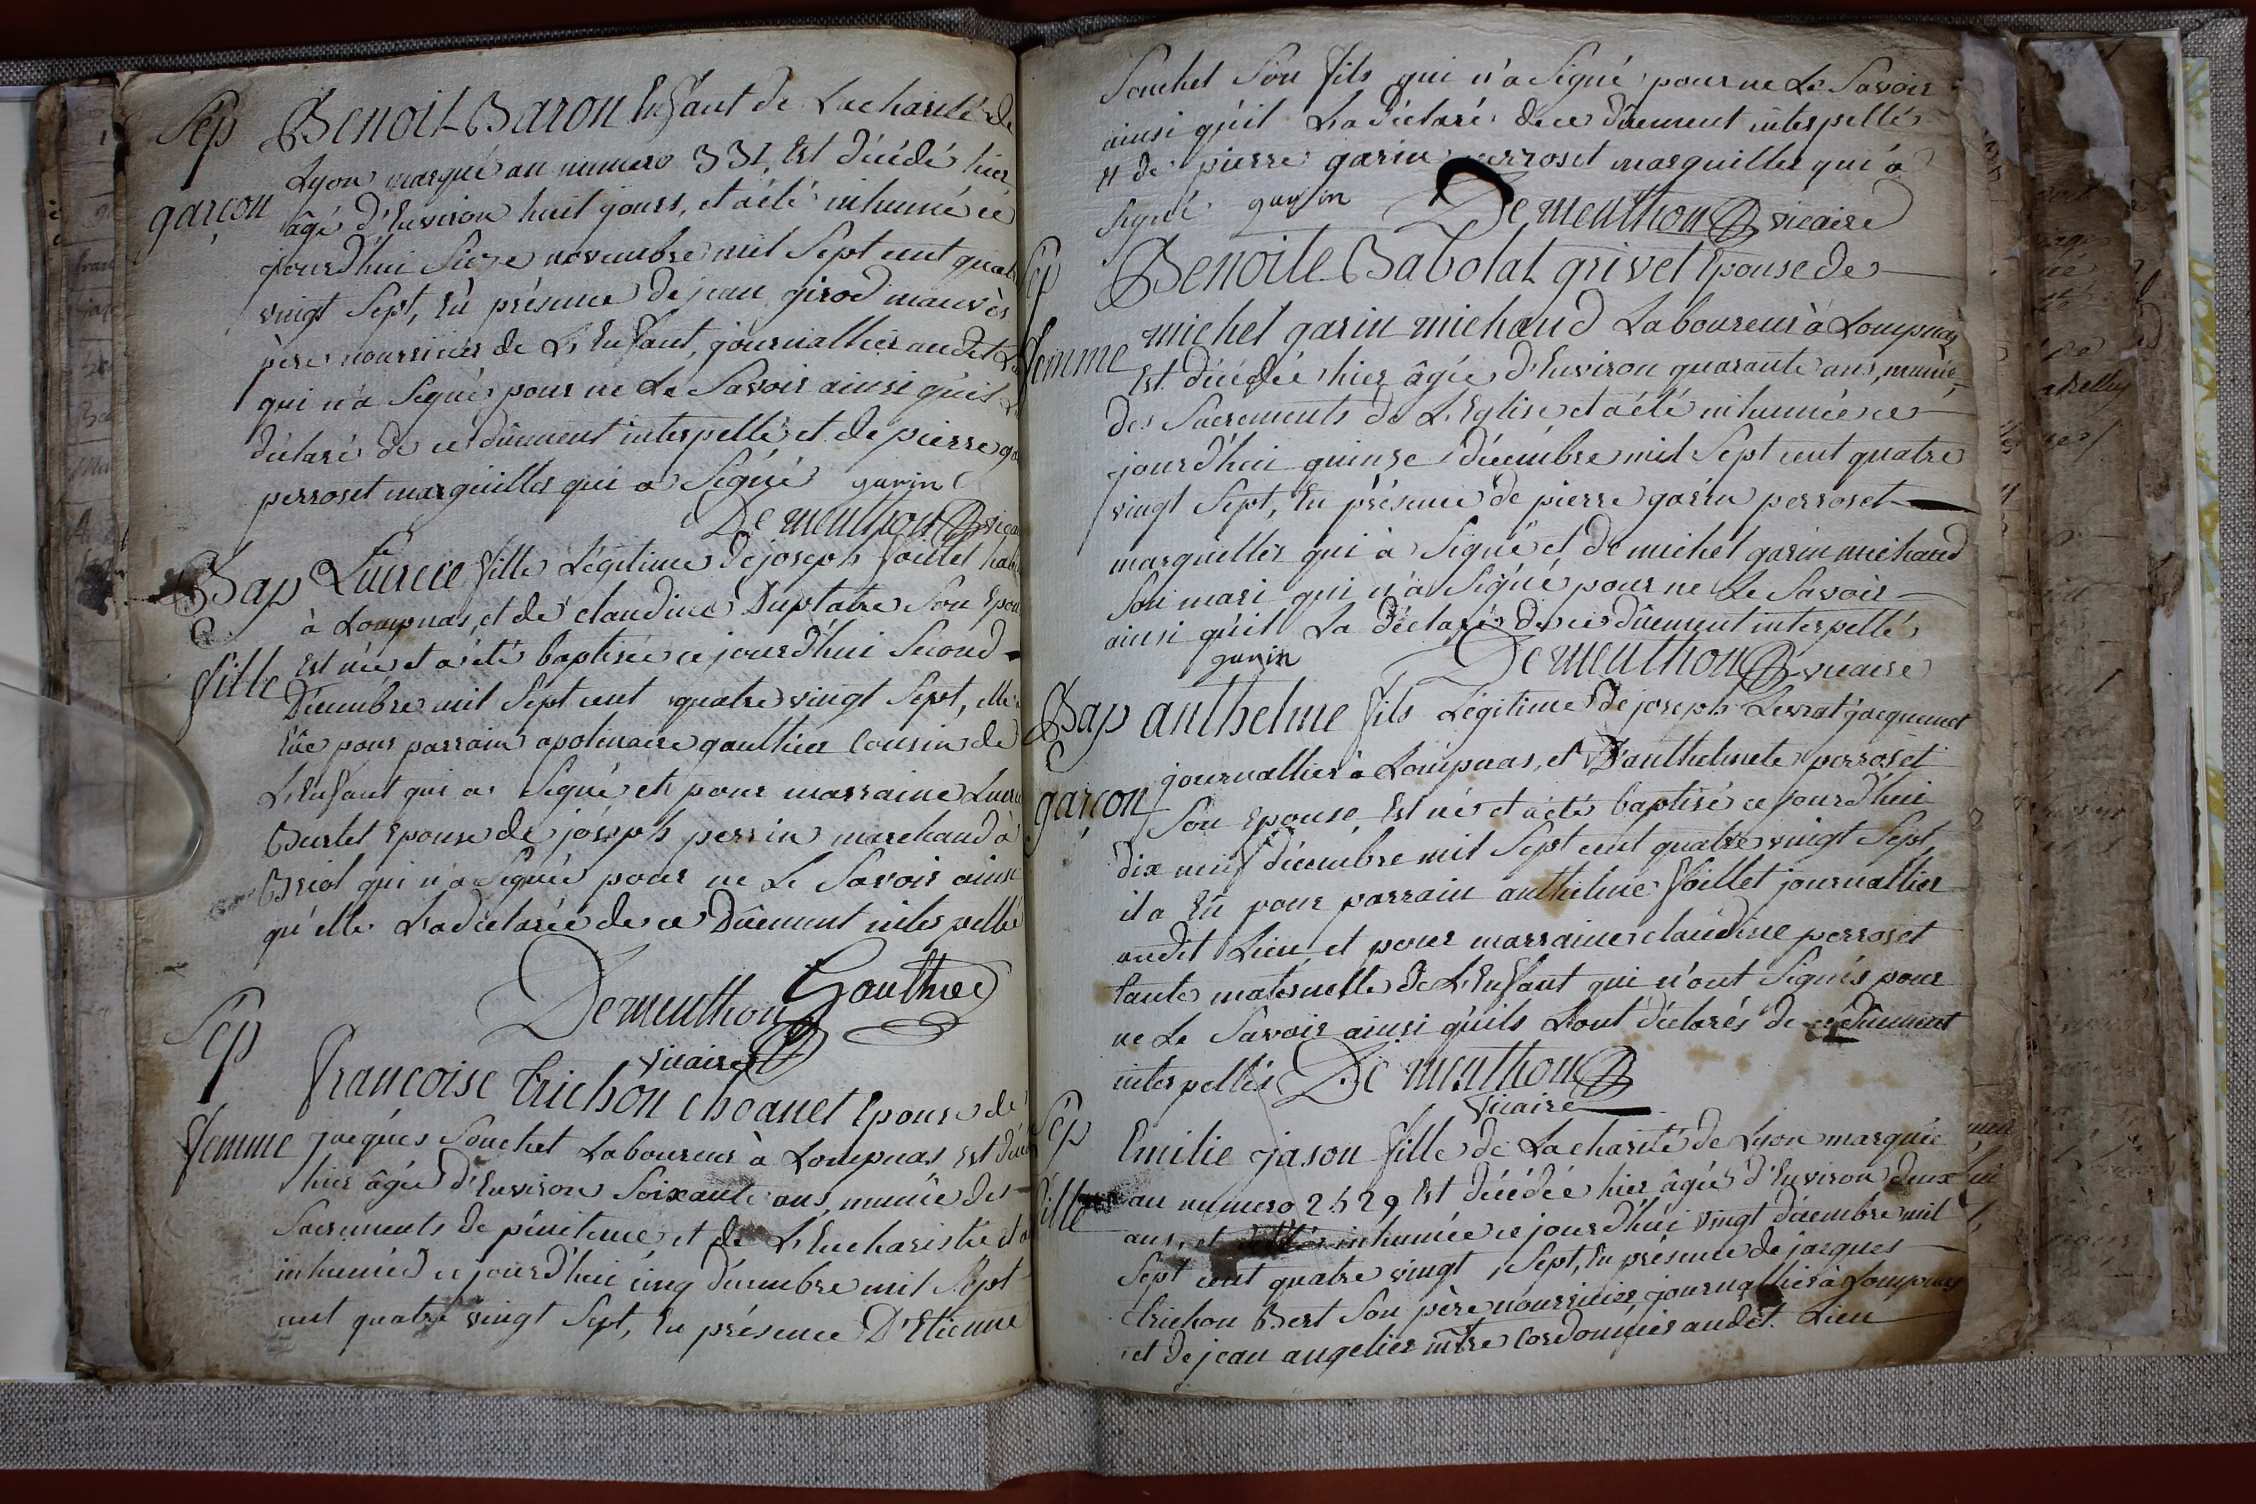 Sep
Benoit Baron Enfant de La charité de
Lyon marqué au numero 331 Est décédé hier
garçon
âgé d'Environ huit jours, et a été inhumé ce
jourd'hui Seize novembre mil Sept cent quatre
vingt Sept, En présence de jean girod mauvès
père nourricier de L'Enfant, journallier audit
qui n'a Signé pour ne Le Savoir ainsi qu'il
déclaré de ce dûement interpellé et de pierre
perroset marguillier qui a Signé garin
De menthon
Bap
Lucrece fille Légitime de joseph foillet
à Lompnas, et de claudine Duplatre Son
fille
Est née et a été baptisée ce jourd'hui Second
Décembre mil Sept cent quatre vingt Sept, elle
Eüe pour parrain apolinaire gaulthier Cousin de
L'Enfant qui a Signé et pour marraine
Burlet Epouse de joseph perrin marchand à
Briol qui n'a Signée pour ne Le Savoir ainsi
qu'elle L'a déclarée de ce Dûement interpellé
De menthon Gaulthier
vicaire
Sep
françoise trichon choanet Epouse de
femme
jacques Souchet Laboureur à Lompnas Est
hier âgée d'Environ Soixante ans, munie des
Sacrements de pénitence et de L'Eucharistie et
inhumée ce jourd'hui cinq décembre mil Sept
cent quatre vingt Sept, En présence D'Etienne
Souchet Son fils qui n'a Signé pour ne Le Savoir
ainsi qu'il L'a déclaré de ce dûement interpellé
et de pierre garin perroset marguillier qui a
Signé garin De menthon vicaire
Benoite Babolat grivet Epouse de
michel garin michaud Laboureur à Lompnas
femme
Est décédée hier âgée d'Environ quarante ans, munie
des Sacrements de L'Eglise et a été inhumée ce
jourd'hui quinse décembre mil Sept cent quatre
vingt Sept, En présence de pierre garin perroset
marguillier qui a Signé et de michel garin michaud
Son mari qui n'a Signé pour ne Le Savoir
ainsi qu'il La déclaré de ce dûement interpellé
garin De menthon vicaire
Bap
anthelme fils Légitime de joseph Levrat jacquemet
journallier à Lompnas, et D'anthelmete perroset
garçon
Son Epouse Est né et a été baptisé ce jourd'hui
dix neuf décembre mil Sept cent quatre vingt Sept
il a Eû pour parrain anthelme foillet journallier
audit Lieu et pour marraine claudine perroset
tante maternelle de L'Enfant qui n'ont Signés pour
ne Le Savoir ainsi qu'ils L'ont déclarés de ce dûement
interpellés De menthon
vicaire
Sep
Emilie jason fille de La charité de Lyon marquée
fille
au numero 2529 Est décédée hier âgée d'Environ deux
ans, et inhumée ce jourd'hui vingt décembre mil
Sept cent quatre vingt Sept, En présence de jacques
trichon Bert Son père nourricier journallier à Lompnas
et de jean angelier mtre Cordonnier audit Lieu